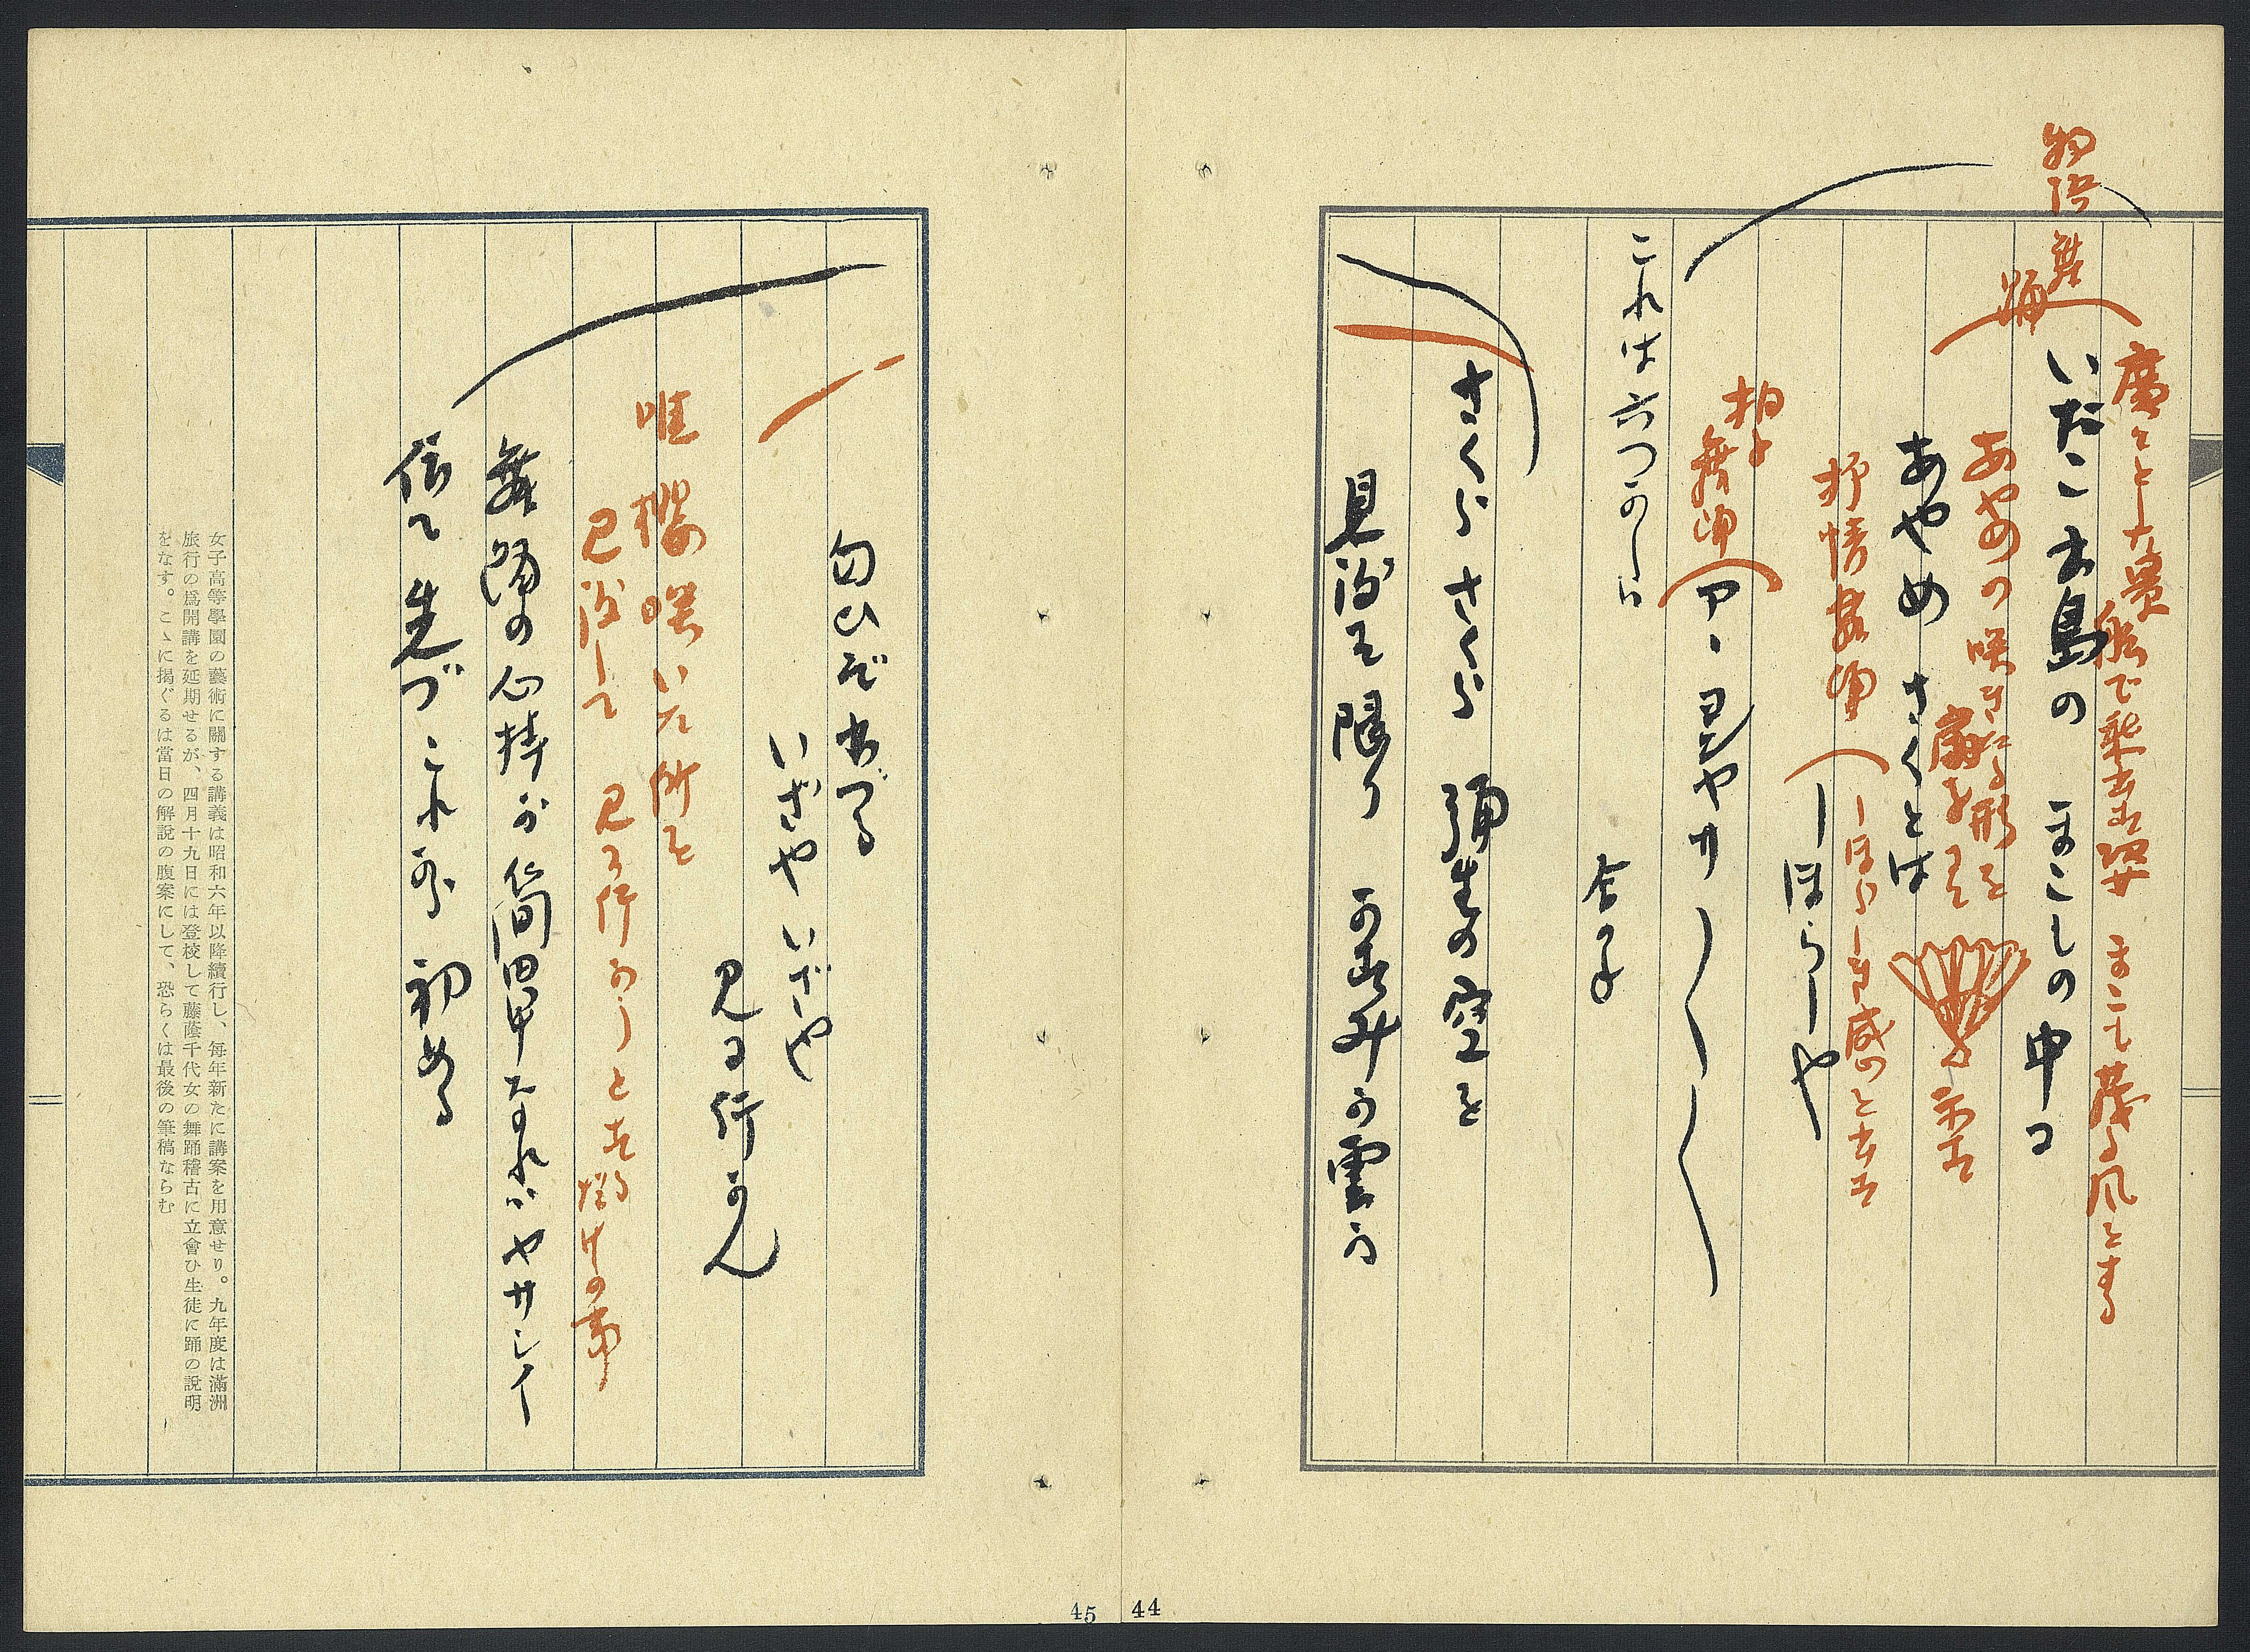 物語舞踊
廣々とした景 船で乗出す姿 まこも茂る風をする
いたこ出島の まこもの中に
あやめの咲きたる形を
扇を
示す
あやめ さくとは
抒情舞踊
しほらしき感のとき
しほらしや
拍子舞踊
ア、ヨイヤサ
これは六つかしい
合の手
さくらさくら 彌生の空を
見渡す限り かすみか雲か
匂ひぞ出づる
いざや いざや
見に行かん
唯櫻咲いた所を
見渡して 見に行かうとする丈けの事
舞踊の心持が簡単なればヤサシイ
依て先づこれから初める
女子高等學園の藝術に關する講義は昭和六年以降續行し、毎年新たに講案を用意せり。九年度は滿洲
旅行の爲開講を延期せるが、四月十九日には登校して藤蔭千代女の舞踊稽古に立會ひ生徒に踊の說明
をなす。こゝに揭ぐるは當日の解說の腹案にして、恐らくは最後の筆稿ならむ
45
44